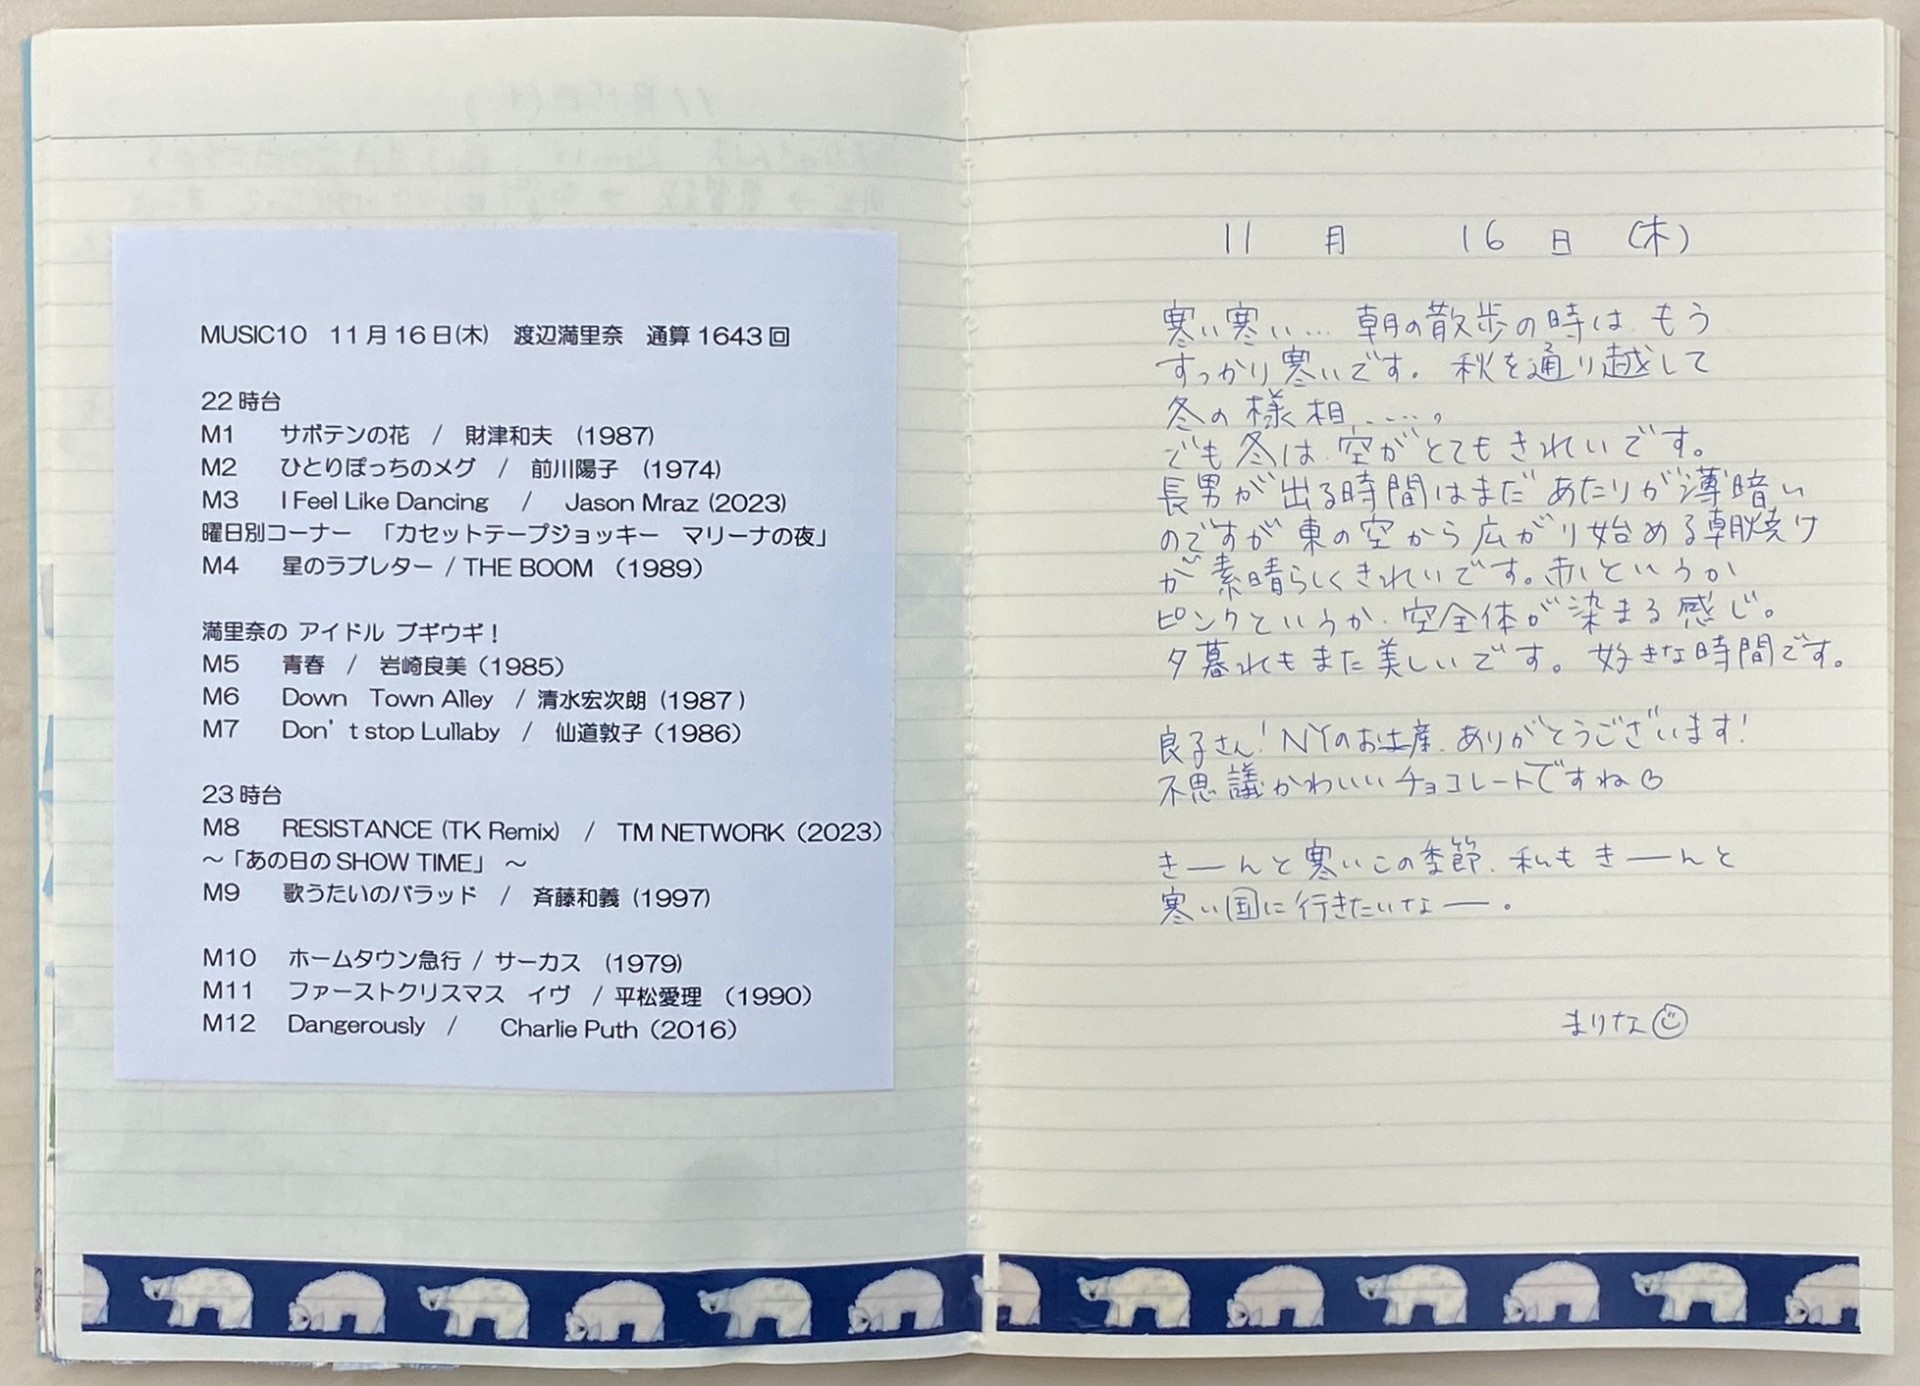 MUSIC10　11月16日(木)　渡辺満里奈　通算1643回
22時台
M1　サボテンの花　/　財津和夫　(1987)
M2　ひとりぼっちのメグ　/　前川陽子　(1974)
M3　I Feel Like Dancing　/　Jason Mraz (2023)
曜日別コーナー　「カセットテープジョッキー　マリーナの夜」
M4　星のラブレター / THE BOOM　(1989)
満里奈の アイドル ブギウギ！
M5　青春　/　岩崎良美 (1985)
M6　Down　Town Alley　/ 清水宏次朗 (1987 )
M7　Don't stop Lullaby　/　仙道敦子 (1986)
23時台
M8　RESISTANCE (TK Remix)　/　TM NETWORK (2023)
～「あの日の SHOW TIME」 ～
M9　歌うたいのバラッド　/　斉藤和義 (1997)
M10　ホームタウン急行 / サーカス　(1979)
M11　ファーストクリスマス　イヴ　/ 平松愛理　(1990)
M12　Dangerously　/　Charlie Puth (2016)
11月16日(木)
寒い寒い… 朝の散歩の時は、もう
すっかり寒いです。秋を通り越して
冬の様相……。
でも冬は、空がとてもきれいです。
長男が出る時間はまだあたりが薄暗い
のですが東の空から広がり始める朝焼け
が素晴らしくきれいです。赤いというか
ピンクというか、空全体が染まる感じ。
夕暮れもまた美しいです。好きな時間です。
良子さん！NYのお土産、ありがとうございます！
不思議かわいいチョコレートですね♡
きーんと寒いこの季節、私もきーんと
寒い国に行きたいなー。
まりな☺